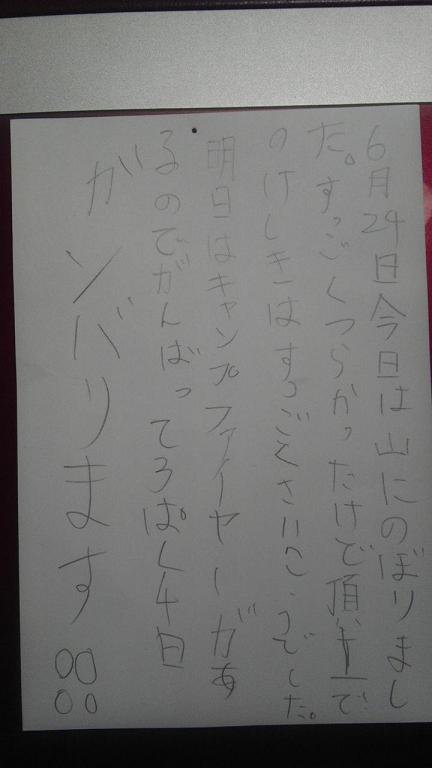 6月24日今日は山にのぼりまし
た。すっごくつらかったけど頂上で
のけしきはすっごくさいこうでした。
明日はキャンプファイヤーがあ
るのでがんばってろぱく4日
がンバります